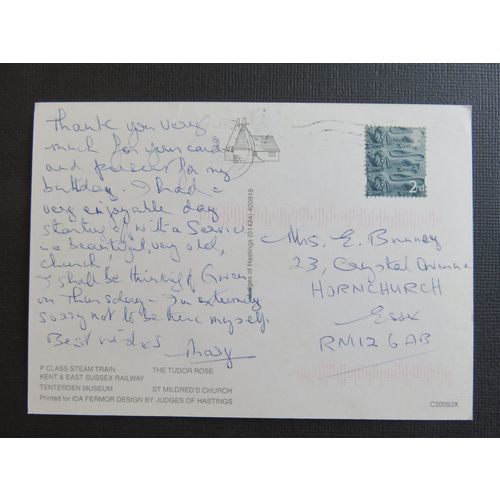 Thank you very
much for your card
and present for my
birthday. I had a
very enjoyable day
starting off with a Service
in a beautiful, very old,
church.
I shall be thinking of Gwen
on Thursday - I'm extremely
sorry not to be there myself.
Best wishes
Mary
P CLASS STEAM TRAIN
KENT & EAST SUSSEX RAILWAY
TENTERDEN MUSEUM
THE TUDOR ROSE
ST MILDRED'S CHURCH
Printed for IDA FERMOR DESIGN BY JUDGES OF HASTINGS
Judges of Hastings (01424) 420919
2nd
Mrs. E. Bunney
23, Crystal Avenue
HORNCHURCH
Essex
RM12 6AB
C20053X